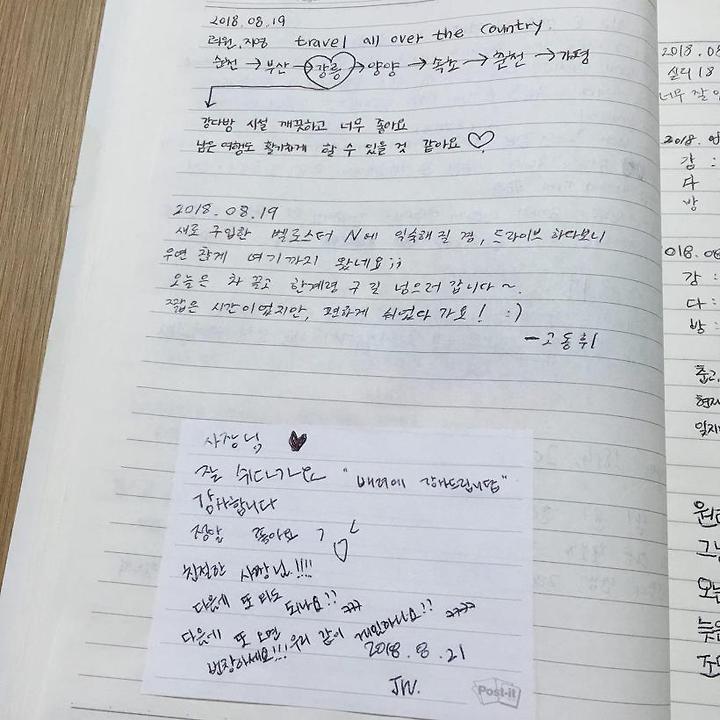 2018.08.19
지영 travel all over the country.
순천 → 부산 → 강릉 → 양양 → 속초 → 춘천 → 가평
강다방 시설 깨끗하고 너무 좋아요
남은 여행도 활기차게 할 수 있을 것 같아요 ♡
2018.08.19
새로 구입한 벨로스터 N에 익숙해질 겸, 드라이브 하다보니
우연찮게 여기까지 왔네요;;
오늘은 차 끌고 한계령 구길 넘으러 갑니다~.
짧은 시간이었지만, 편하게 쉬었다 가요! :)
- 고동휘
사장님 ♥
잘 쉬다가요 "배려에 감사드립니다"
감사합니다
정말 좋아요
친절한 사장님!!!!
다음에 또 와도 되나요?? ㅋㅋ
다음에 또 오면 우리 같이 게임하나요?? ㅋㅋㅋㅋ
번창하세요!!!
2018.8.21
JW.
Post-it
2018.08
실디 18
너무 잘
2018.
감:
다
방
018.08
감:
다:
방:
현재
그냥
오늘